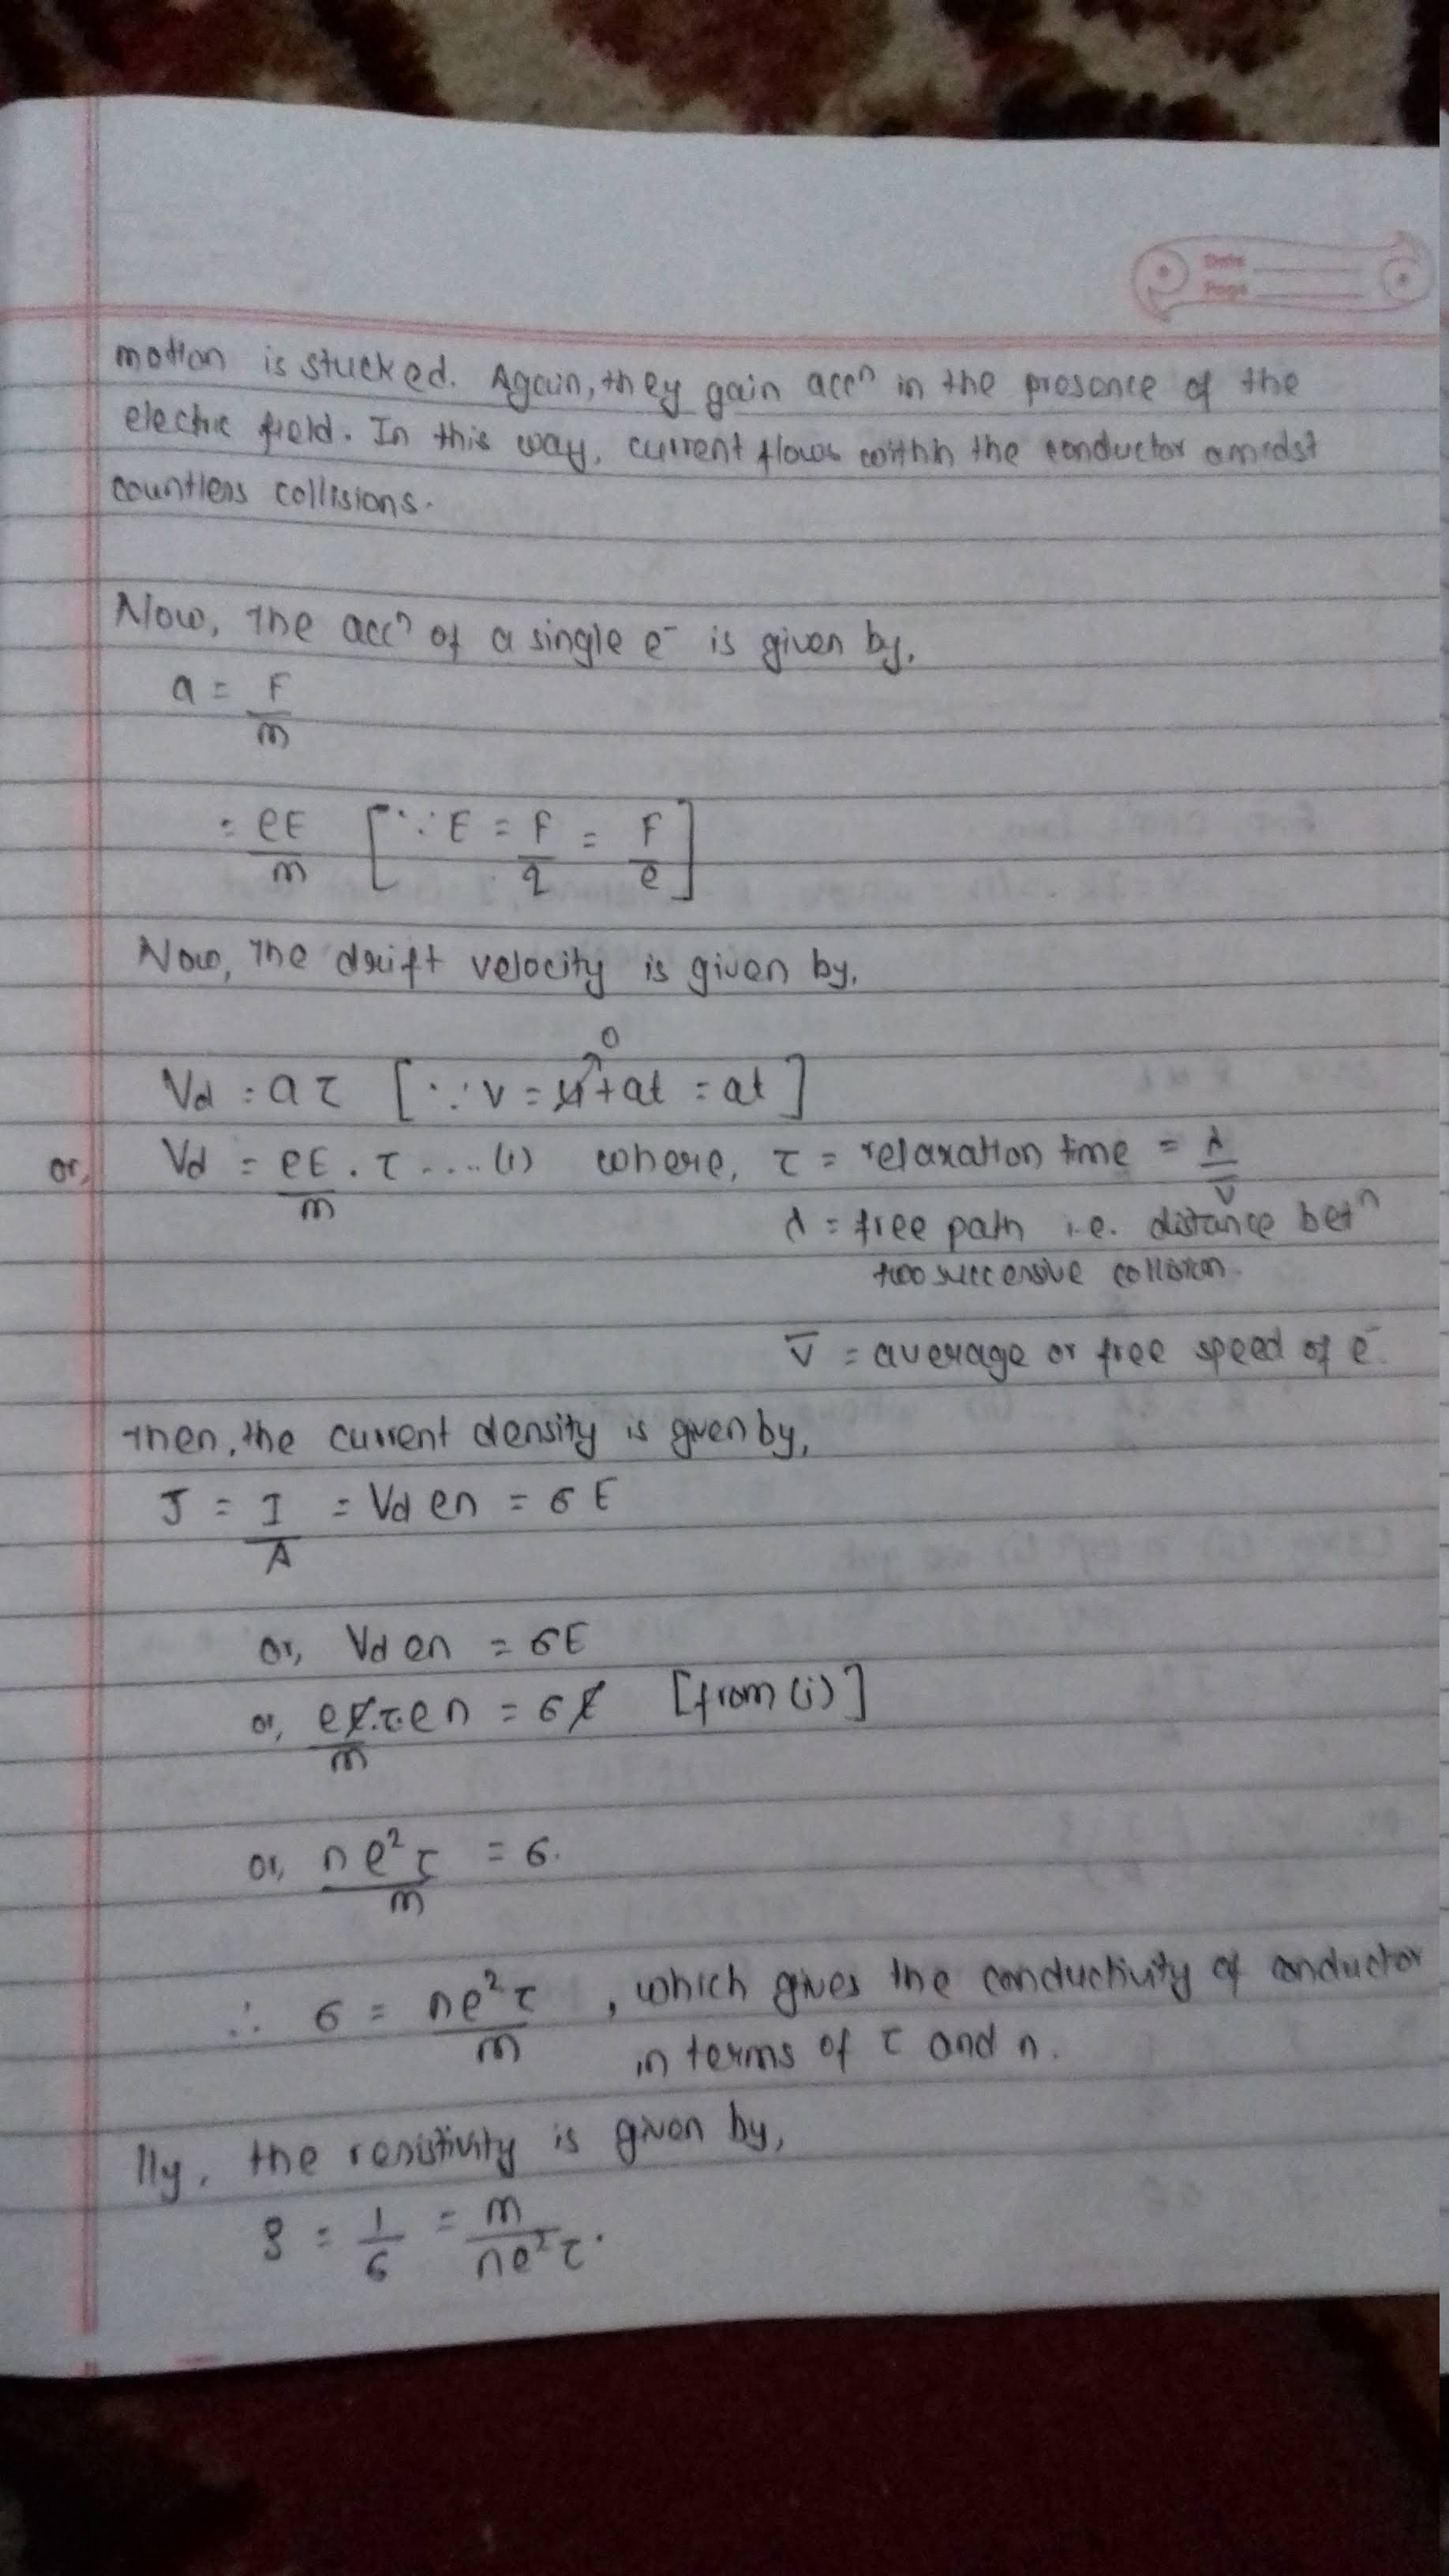 Date
Page
motion is stucked. Again, they gain accⁿ in the presence of the
electric field. In this way, current flows within the conductor amidst
countless collisions.
Now, the accⁿ of a single e⁻ is given by,
a = F/m
= eE/m [∵ E = F/q = F/e]
Now, the drift velocity is given by,
Vd = aτ [∵ v = u⁰ + at = at]
or, Vd = eE/m . τ ....(i) where, τ = relaxation time = λ/v̄
λ = free path i.e. distance betⁿ
two successive collision.
v̄ = average or free speed of e⁻.
then, the current density is given by,
J = I/A = Vd en = σE
or, Vd en = σE
or, eE.τ.en/m = σE [from (i)]
or, ne²τ/m = σ.
∴ σ = ne²τ/m , which gives the conductivity of conductor
in terms of τ and n.
lly, the resistivity is given by,
ρ = 1/σ = m/ne²τ.